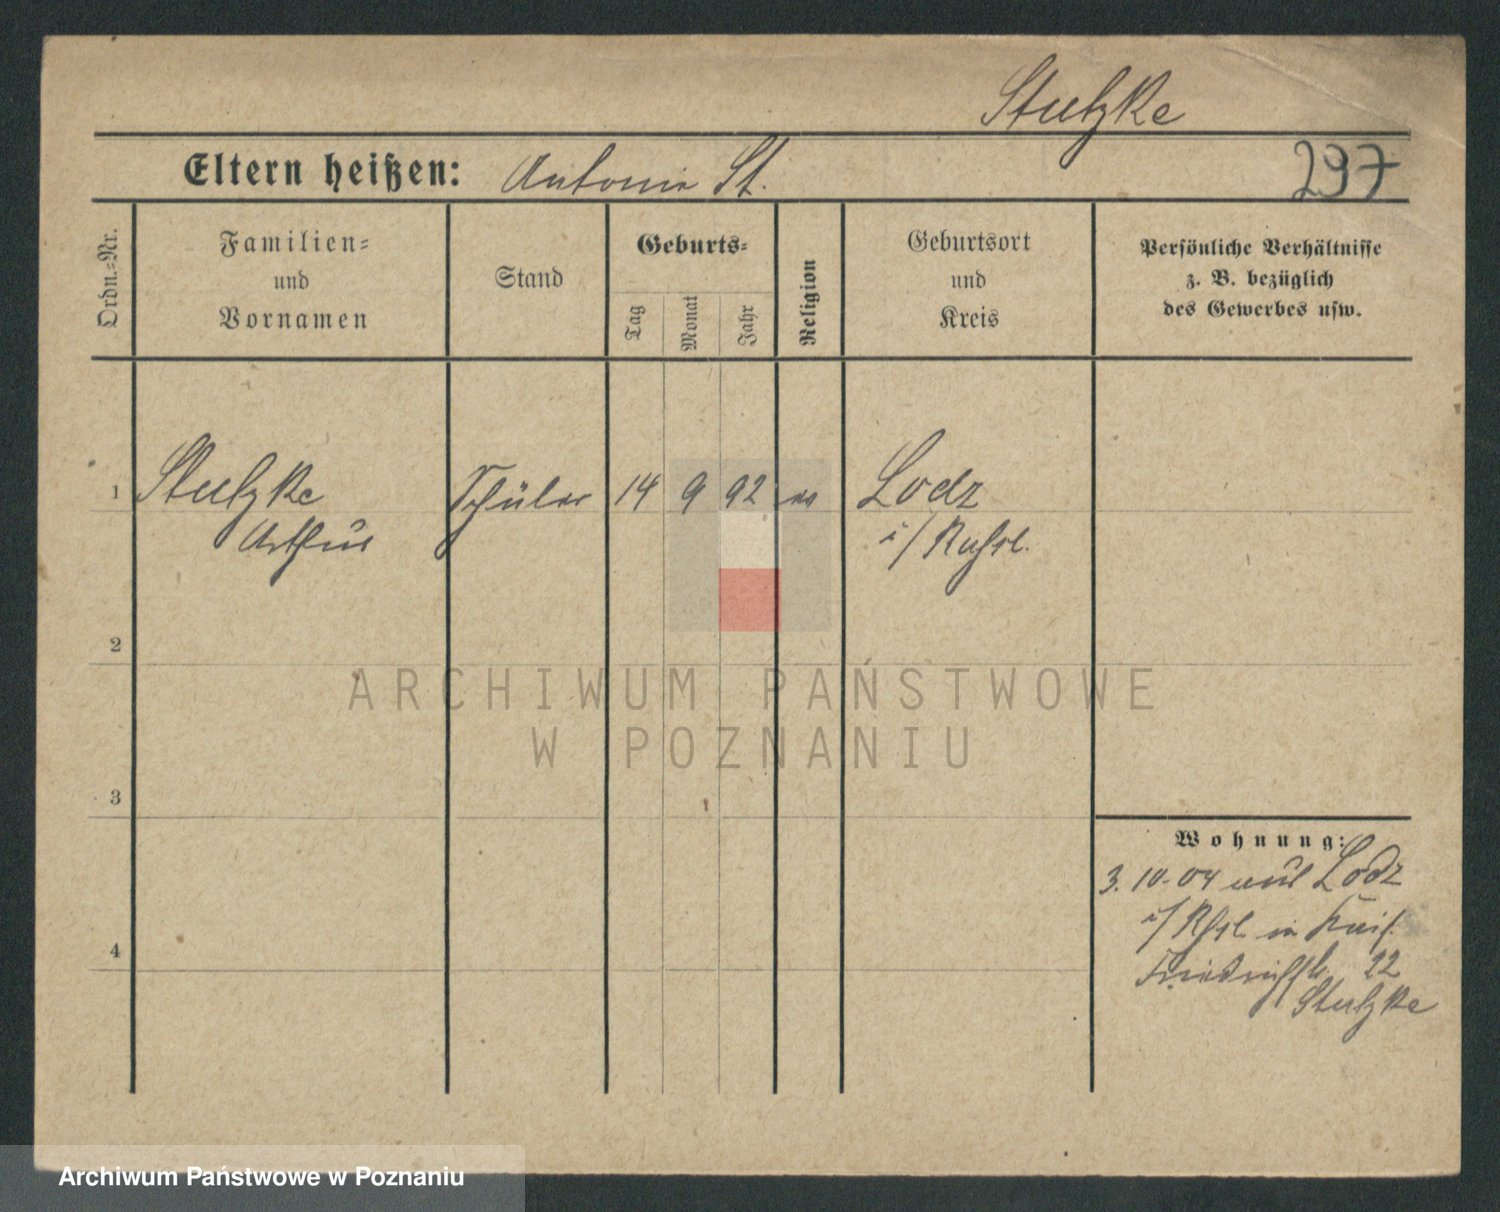 Stulzke
Eltern heißen: Antonie St.
297
Ordn.=Nr.
Familien=
und
Vornamen
Stand
Geburts=
Tag
Monat
Jahr
Religion
Geburtsort
und
Kreis
Persönliche Verhältnisse
z. B. bezüglich
des Gewerbes usw.
1 Stulzke Schüler 14 9 92 Lodz
Arthur i/ Rußl.
2
ARCHIWUM PAŃSTWOWE
W POZNANIU
3
Wohnung:
3. 10. 04 aus Lodz
i/ Rßl. in
Friedrichstr. 22
Stulzke
4
Archiwum Państwowe w Poznaniu